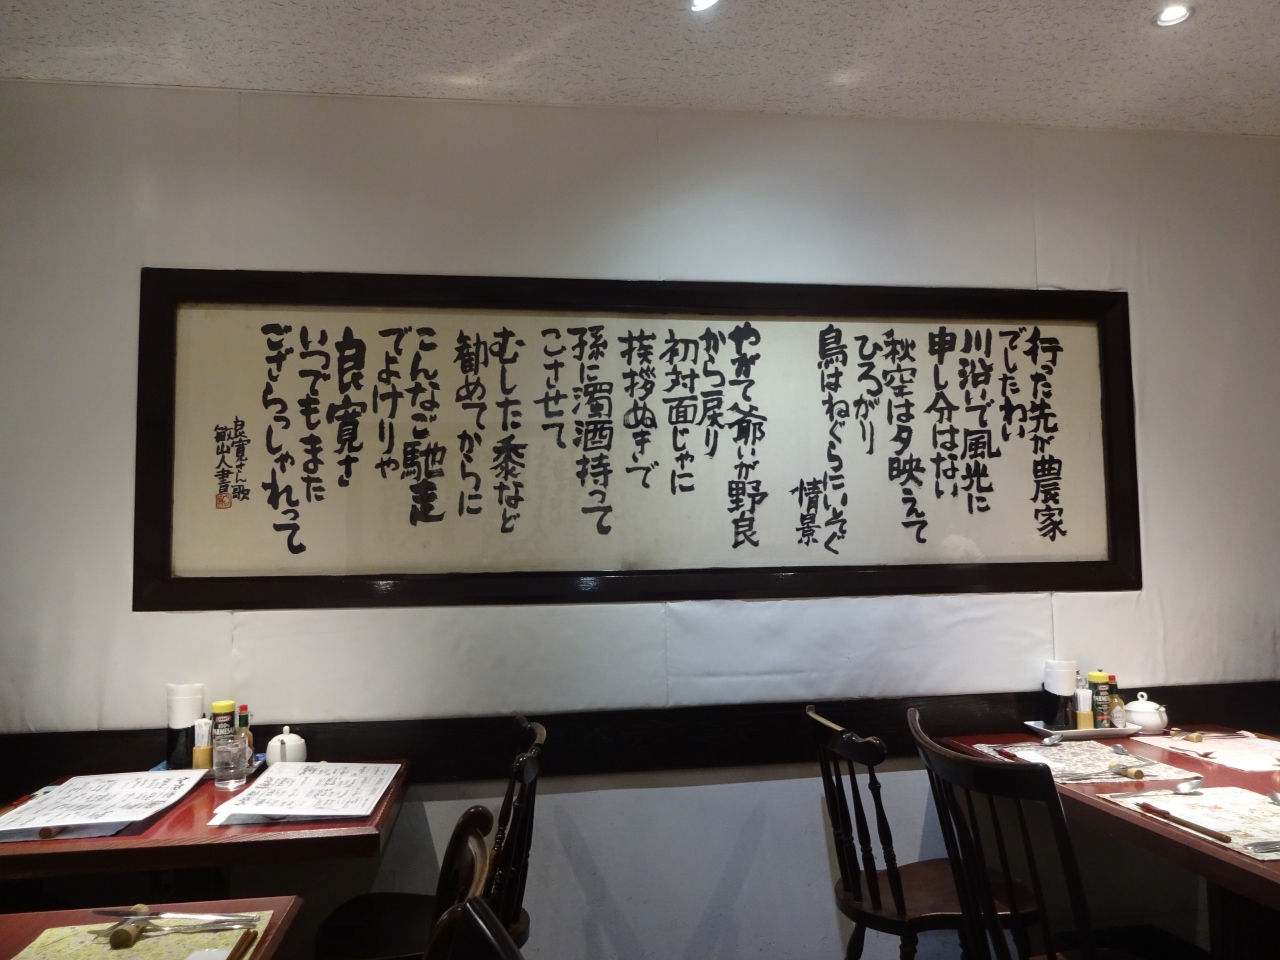 行った先が農家
でしたわい
川沿いで風光に
申し分はない
秋空は夕映えて
ひろがり
鳥はねぐらにいそぐ
情景
やがて爺いが野良
から戻り
初対面じゃに
挨拶ぬきで
孫に濁酒持って
こさせて
むした黍など
勧めてからに
こんなご馳走
でよけりゃ
良寛さ
いつでもまた
ござらっしゃれって
良寛さん歌
山人書
100%
PARMESAN